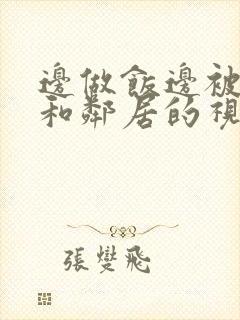 邊做飯邊被
和鄰居的視
張燮飛